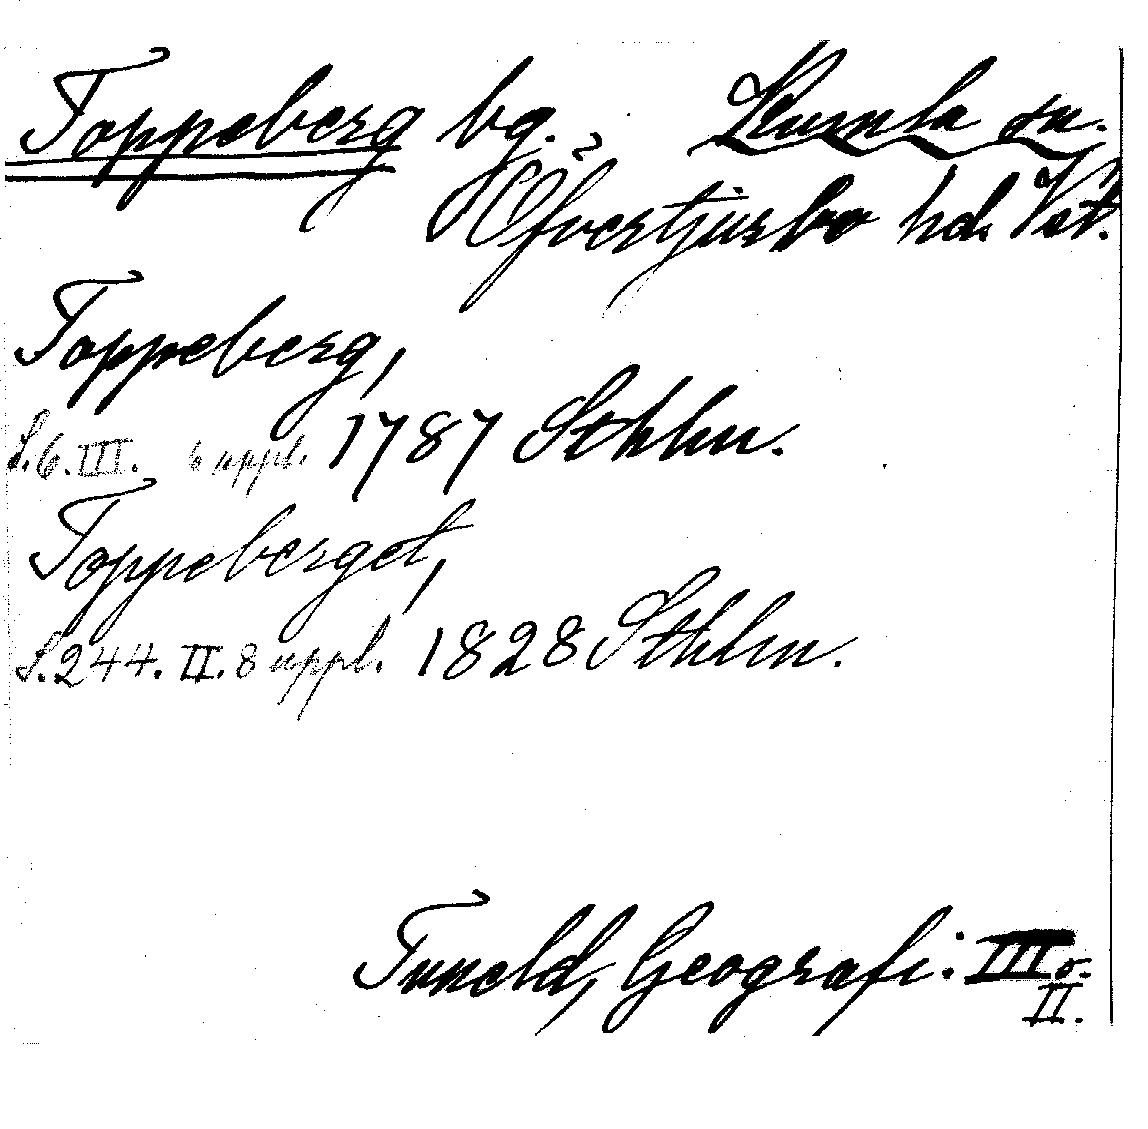 Toppeberg bg. Kumla sn.
Öfvertjurbo hd. Vst.
Toppeberg,
S. 6. III. 6 uppl. 1787 Sthlm.
Toppeberget,
S. 244. II. 8 uppl. 1828 Sthlm.
Tuneld, Geografi: III o.
II.